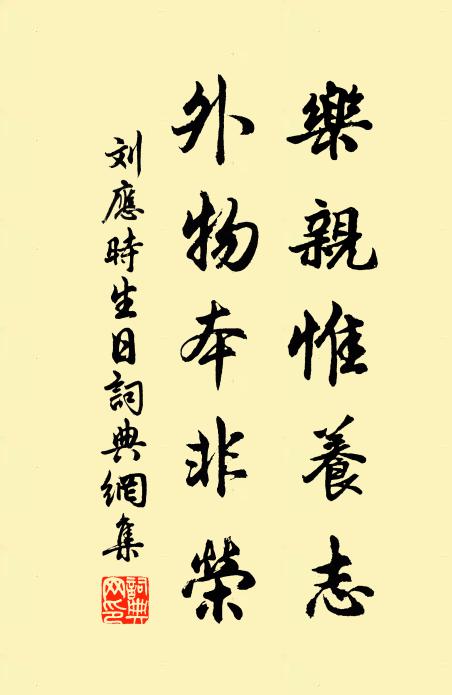 樂親惟養志
外物本非榮
刘應時生日詞典網集
詞典
网印